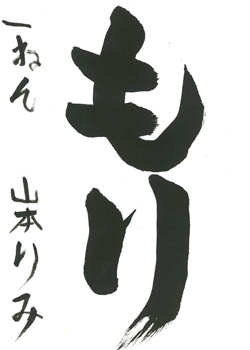 もり
一ねん 山本りみ